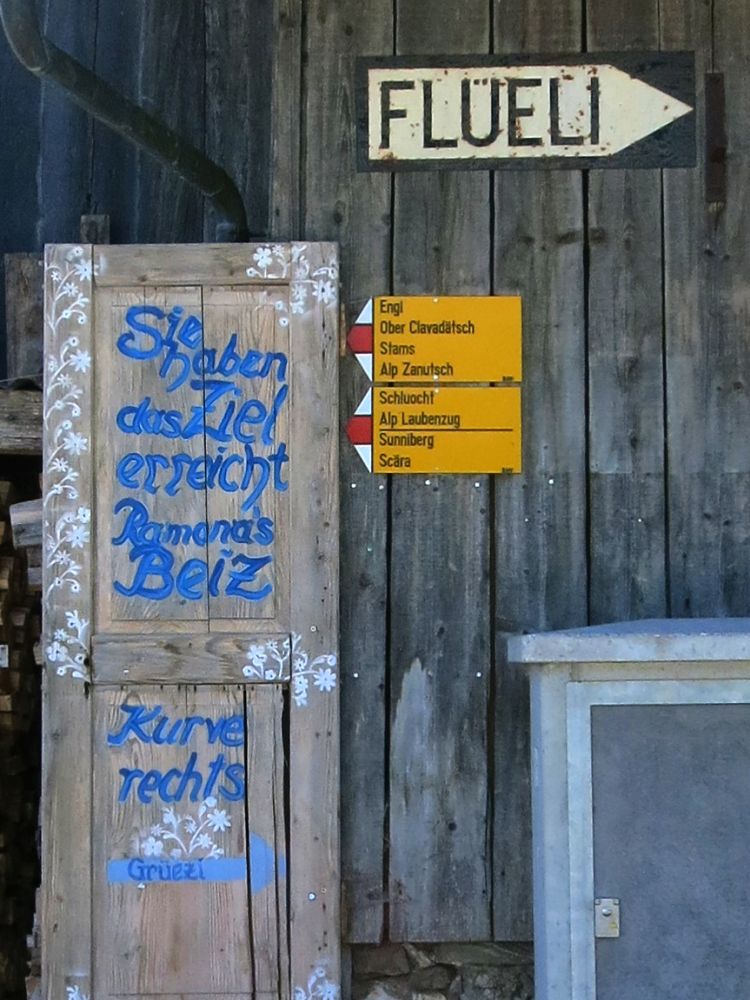 FLÜELI
Engi
Ober Clavadätsch
Stams
Alp Zanutsch
Schluocht
Alp Laubenzug
Sunniberg
Scära
Sie
haben
das Ziel
erreicht
Ramona's
Beiz
Kurve
rechts
Grüezi